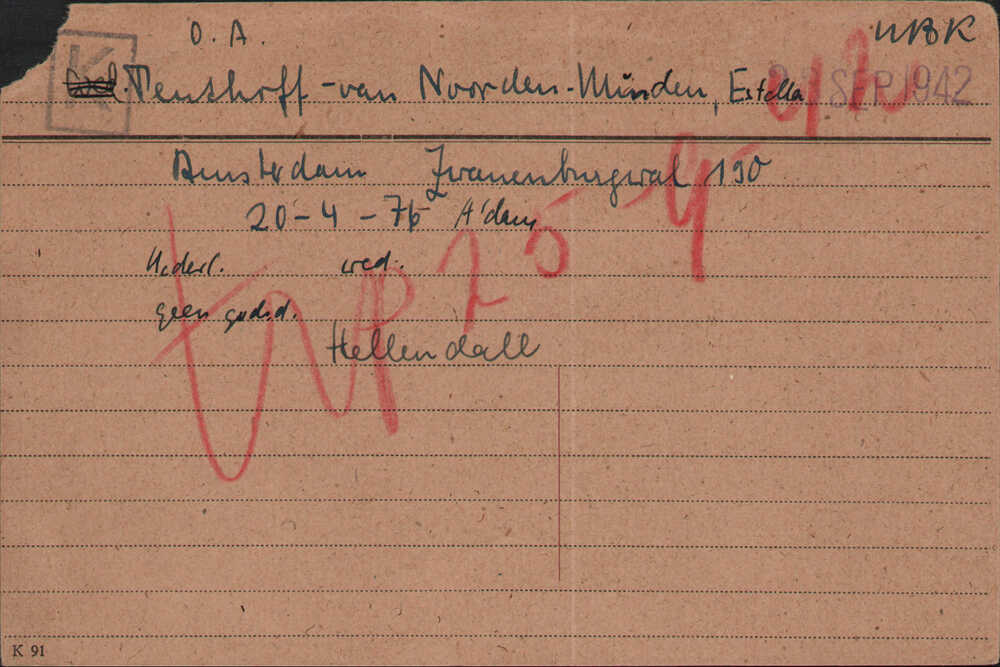 O. A.
UBK
K
Tensthoff - van Noorden - Minden, Estella
SEP 1942
Amsterdam Zwanenburgwal 190
20 - 4 - 76 A'dam
Nederl. wed.
geen godsd.
Hellendall
25-9-42
K 91